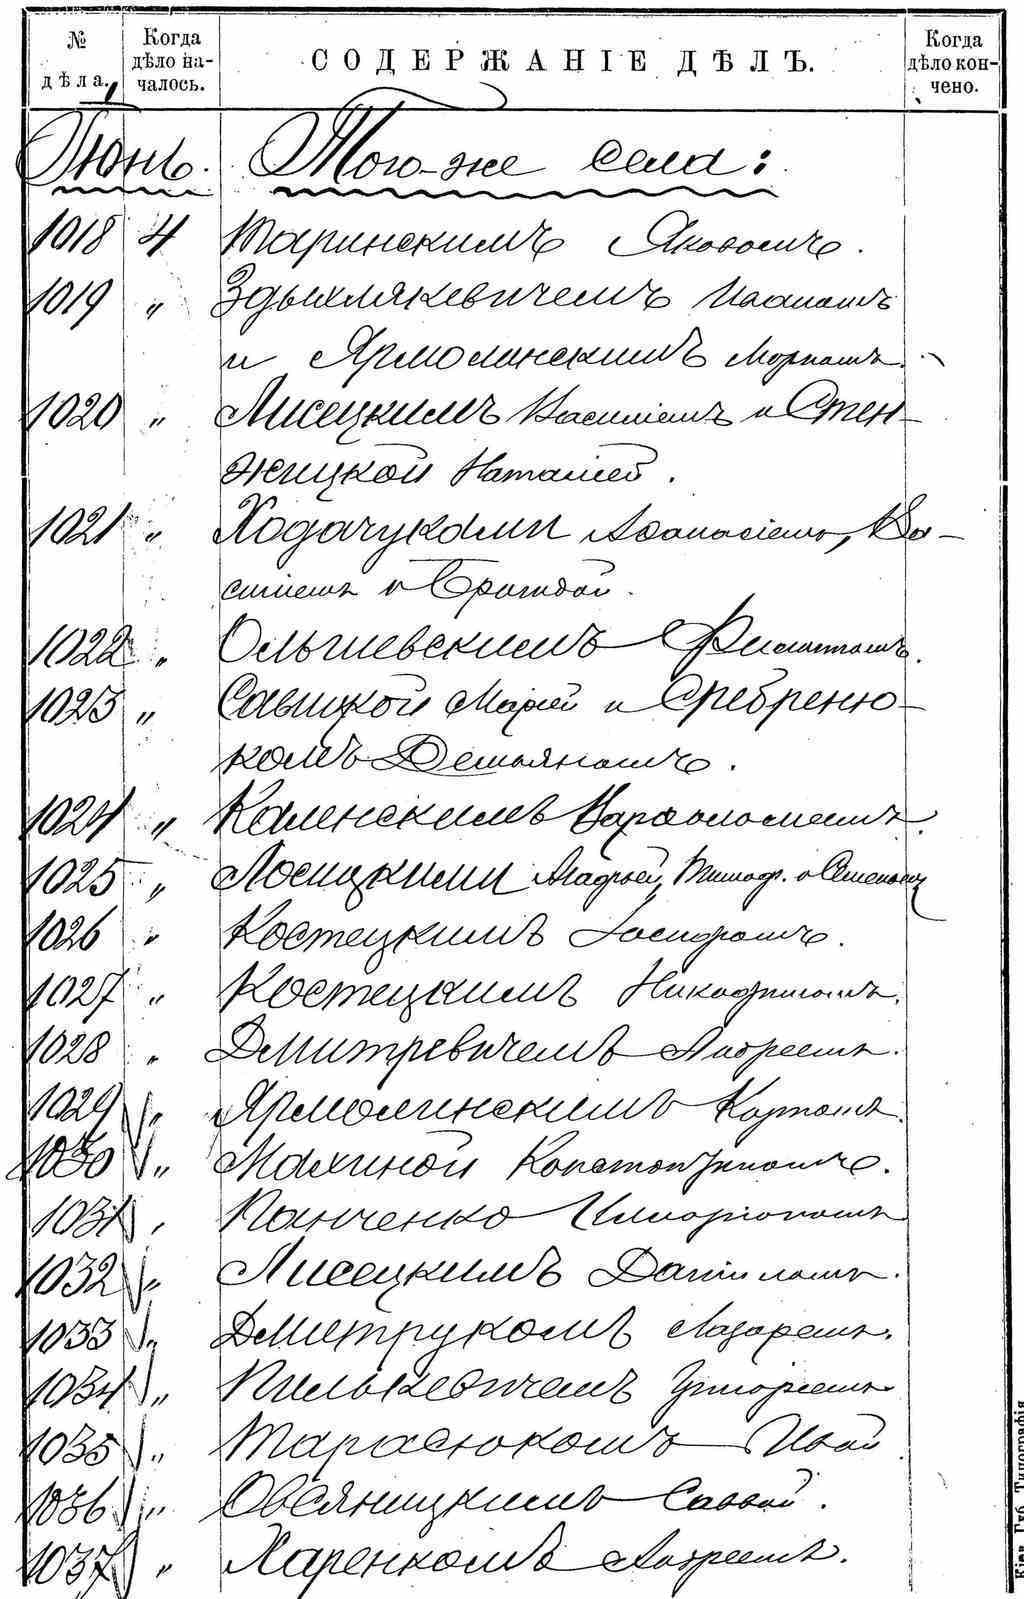 № дѣла.
Когда дѣло началось.
СОДЕРЖАНІЕ ДѢЛЪ.
Когда дѣло кончено.
Іюнь. Того-же села:
1018 4 Таринскимъ Яковомъ.
1019 " Здыхлякевичемъ Иваномъ
и Ярмолинскимъ Маркомъ.
1020 " Лисецкимъ Василіемъ и Стен-
жицкой Наталіей.
1021 " Ходачуками Афанасіемъ, Ва-
силіемъ и
1022 " Ольшевскимъ Филиппомъ.
1023 " Савицкой Маріей и Сребреню-
комъ Демьяномъ.
1024 " Каленскимъ Варфоломеемъ.
1025 " Лосицкими Агафьей, Тимоф. и Семеномъ
1026 " Костецкимъ Іосифомъ.
1027 " Костецкимъ Никифоромъ.
1028 " Дмитревичемъ Андреемъ.
1029 " Ярмолинскимъ
1030 " Махиной Константиномъ.
1031 " Панченко Илларіономъ
1032 " Лисецкимъ Даніиломъ.
1033 " Дмитрукомъ Лазаремъ.
1034 " Пилькевичемъ Григоріемъ
1035 " Тарасюкомъ
1036 " Овсяницкимъ Саввой.
1037 " Харенкомъ Андреемъ.
Кіев. Губ. Типографія